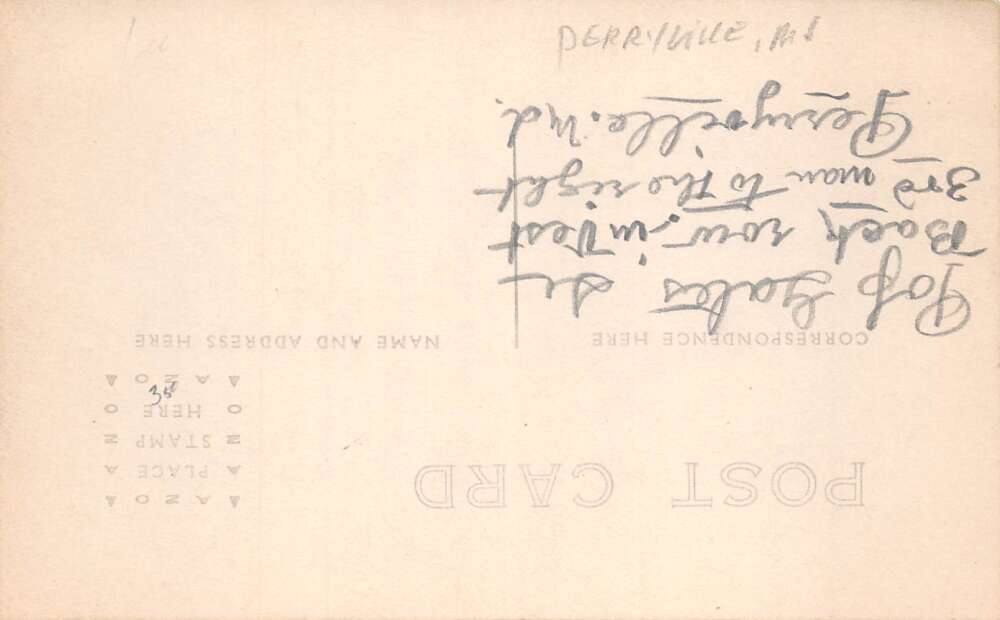 PERRYVILLE, Md
POST CARD
AZO
PLACE
STAMP
HERE
AZO
35¢
CORRESPONDENCE HERE
NAME AND ADDRESS HERE
Pop Gales Sr
Back row, in Vest
3rd man to the right
Perryville. Md.